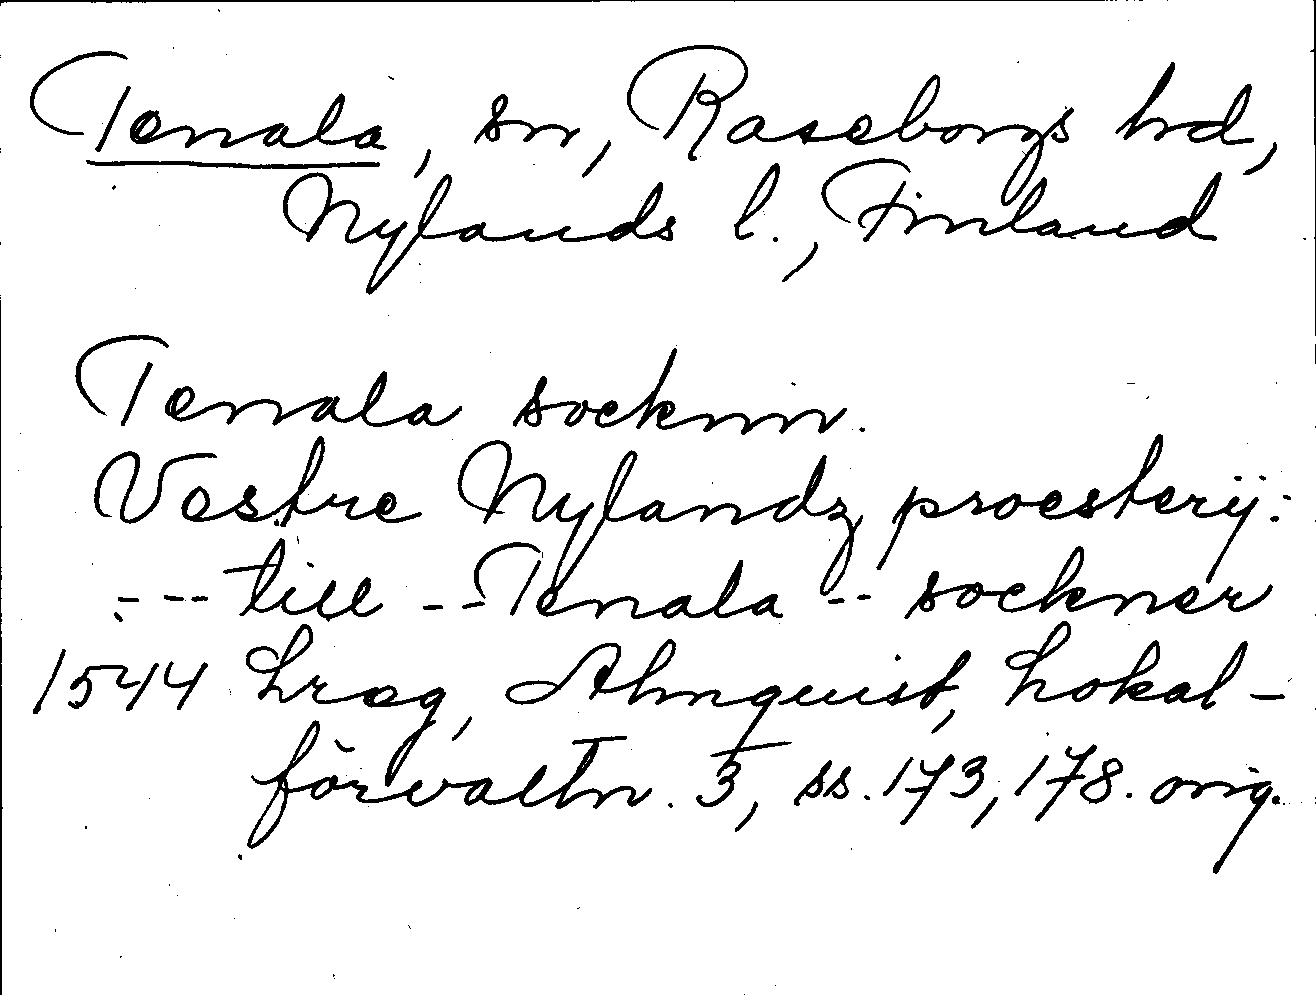 Tenala, sn, Raseborgs hrd,
Nylands l., Finland
Tenala socknn.
Vestre Nylandz proesterij:
--- till -- Tenala -- sockner
1544 Lreg, Almquist, Lokal-
förvaltn. 3, ss. 173, 178. orig.